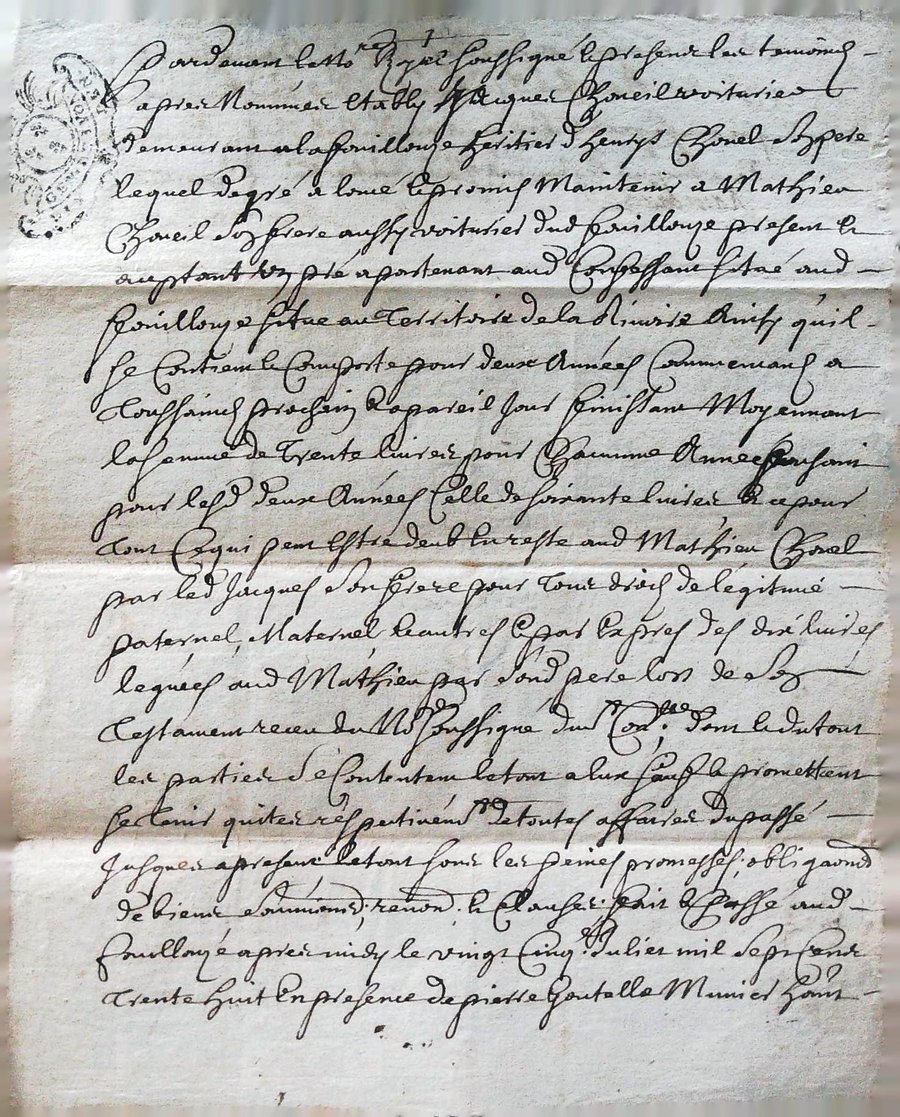 Pardevant le No.re Royal soussigné et presens les temoins
apres Nommés Etably Jacques Chovel voiturier
demeurant a la fouillouze heritier d'henry Chovel son pere
lequel de gré a loué et promis Maintenir a Mathieu
Chovel son frere aussy voiturier dud fouillouze present et
acceptant un pré apartenant aud Confessant situé aud
fouillouze situe au Territoire de la Riuoire Ainsy qu'il
se Contient et Comporte pour deux Années Commencans a
Toussaincts prochain et a pareil Jour finissant Moyennant
la somme de Trente liures pour Chacunne Année faisant
pour lesd deux Années Celle de soixante liures et ce pour
Tout Ce qui peut Estre deub En reste aud Mathieu Chovel
par led Jacques son frere pour Tous droits de légitime
paternel, Maternel et autres Et par Expres des dix liures
leguées aud Mathieu par sond pere lors de son
Testament receu du No.re soussigné dont et du tout
les parties se Contentent le tout a eux sauf et promettent
se Tenir quites respectivem.t de toutes affaires du passé
Jusques a present le tout sous les peines, promesses, obliga.ons
de biens soumions, renon.d et Clauses. fait et Passé aud
fouillouze apres midy le vingt Cinq.e Juliet mil sept Cens
Trente huit En presence de pierre Munier